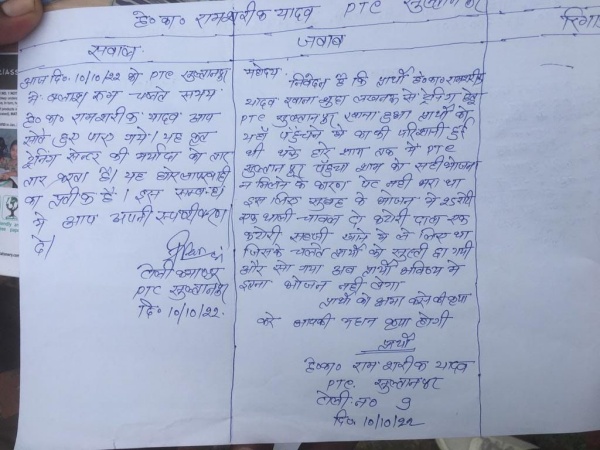 हे० का० रामशरीक यादव PTC सुल्तानपुर
सवाल
आज दि० 10/10/22 को PTC सुल्तानपुर
में क्लास रूम चलते समय
हे० का० रामशरीक यादव आप
सोते हुए पाए गये। यह कृत
ट्रेनिंग सेन्टर की मर्यादा को तार
तार करता है। यह घोर लापरवाही
का प्रतीक है। इस सम्बन्ध
में आप अपनी स्पष्टीकरण
दे।
टोली कमाण्डर
PTC सुल्तानपुर
दि० 10/10/22.
जवाब
महोदय
निवेदन है कि प्रार्थी हे० का० रामशरीक
यादव रवाना शुदा लखनऊ से ट्रेनिंग हेतु
PTC सुल्तानपुर रवाना हुआ प्रार्थी को
यहाँ पहुँचने में काफी परेशानी हुई
थी थके हारे शाम तक में PTC
सुल्तानपुर पहुंचा शाम को सही भोजन
न मिलने के कारण पेट नही भरा था
इस लिए सुबह के भोजन में 25 रोटी
एक थाली चावल दो कटोरी दाल एक
कटोरी सब्जी खाने में ले लिए था
जिसके चलते प्रार्थी को सुस्ती आ गयी
और सो गया अब प्रार्थी भविष्य में
इतना भोजन नहीं लेगा
प्रार्थी को क्षमा करने की कृपा
करे आपकी महान कृपा होगी
प्रार्थी
हे० का० राम शरीक यादव
PTC. सुल्तानपुर
टोली न० 9
दि. 10/10/22